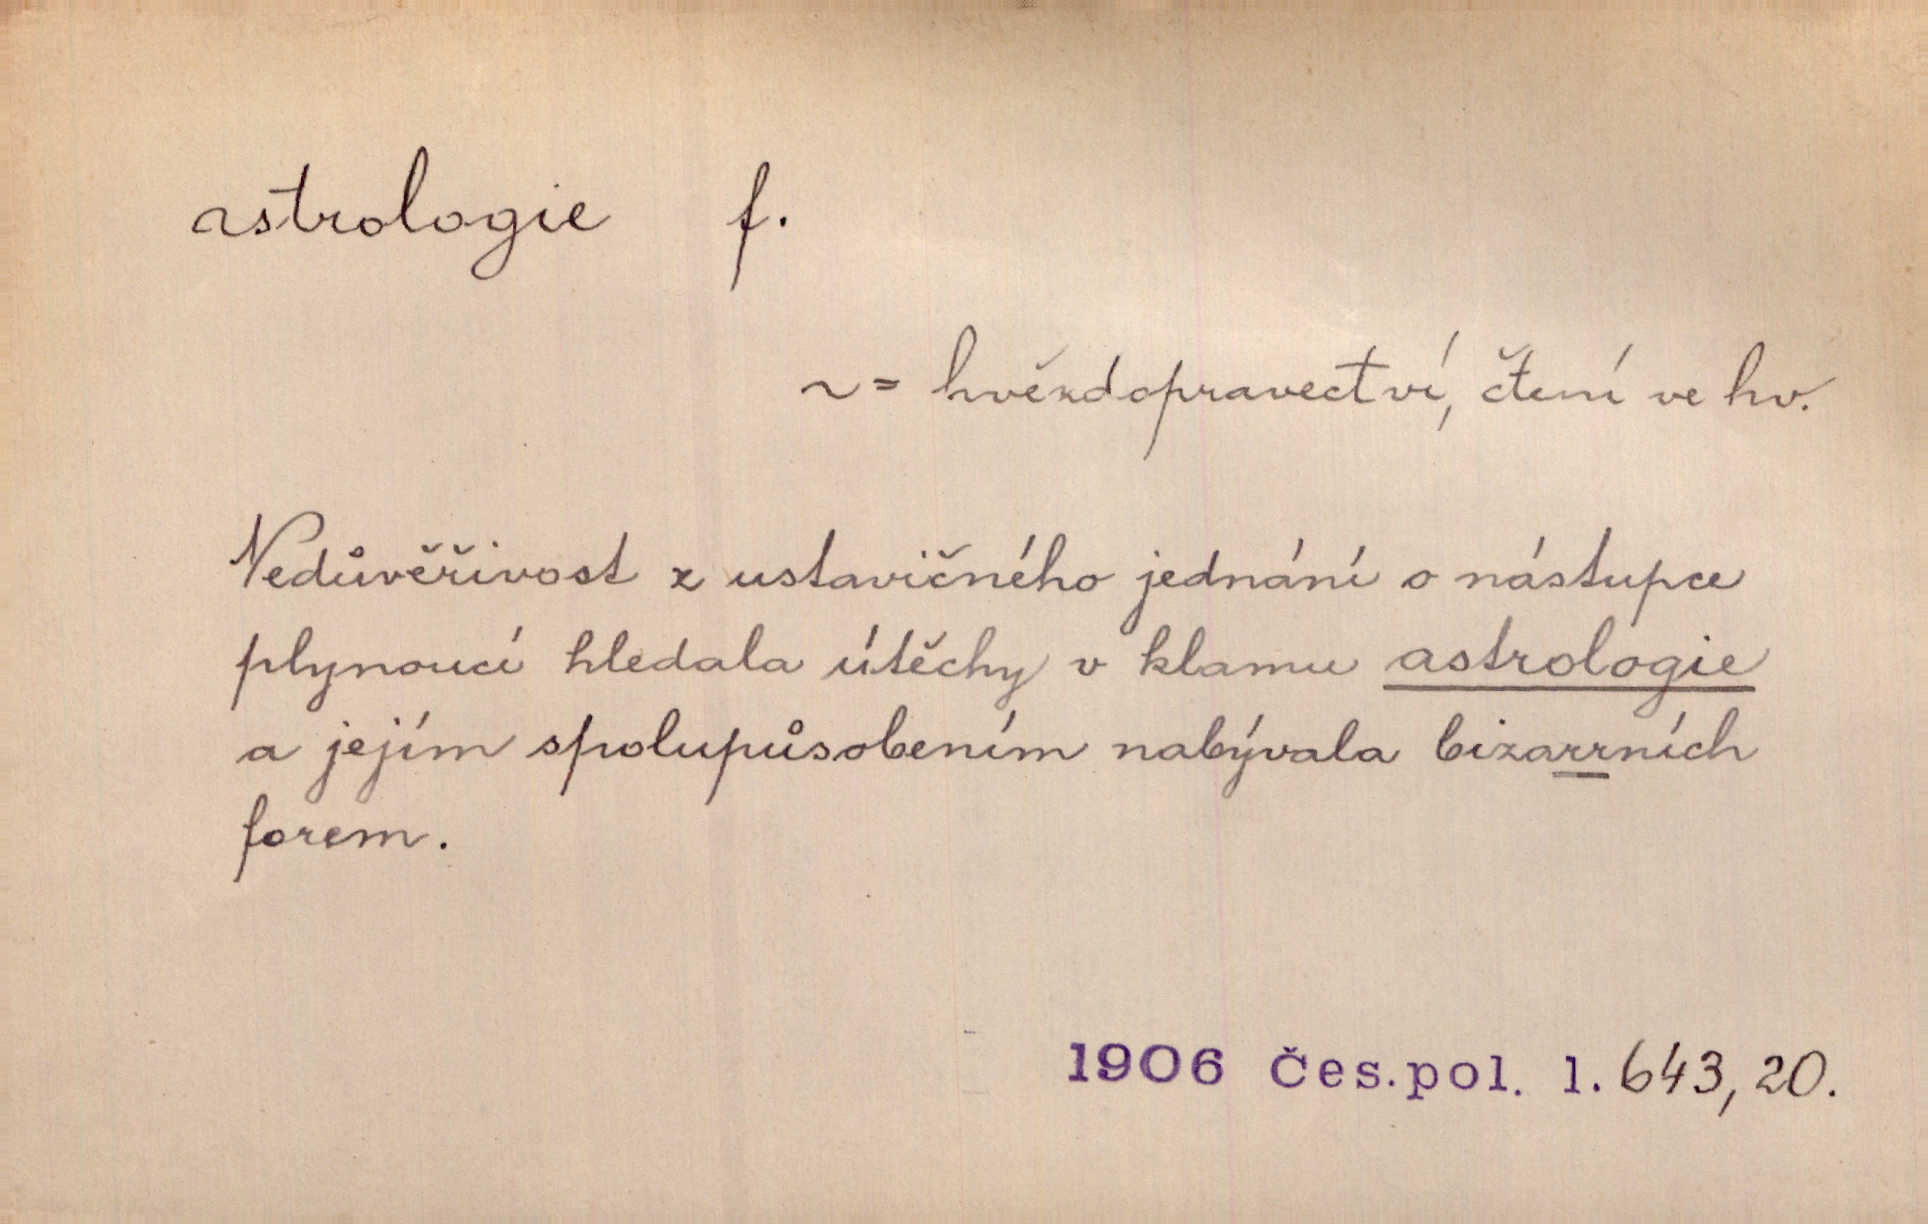 astrologie f.
~ = hvězdopravectví, čtení ve hv.
Nedůvěřivost z ustavičného jednání o nástupce
plynoucí hledala útěchy v klamu astrologie
a jejím spolupůsobením nabývala bizarrních
forem.
1906 Čes.pol. 1.643,20.